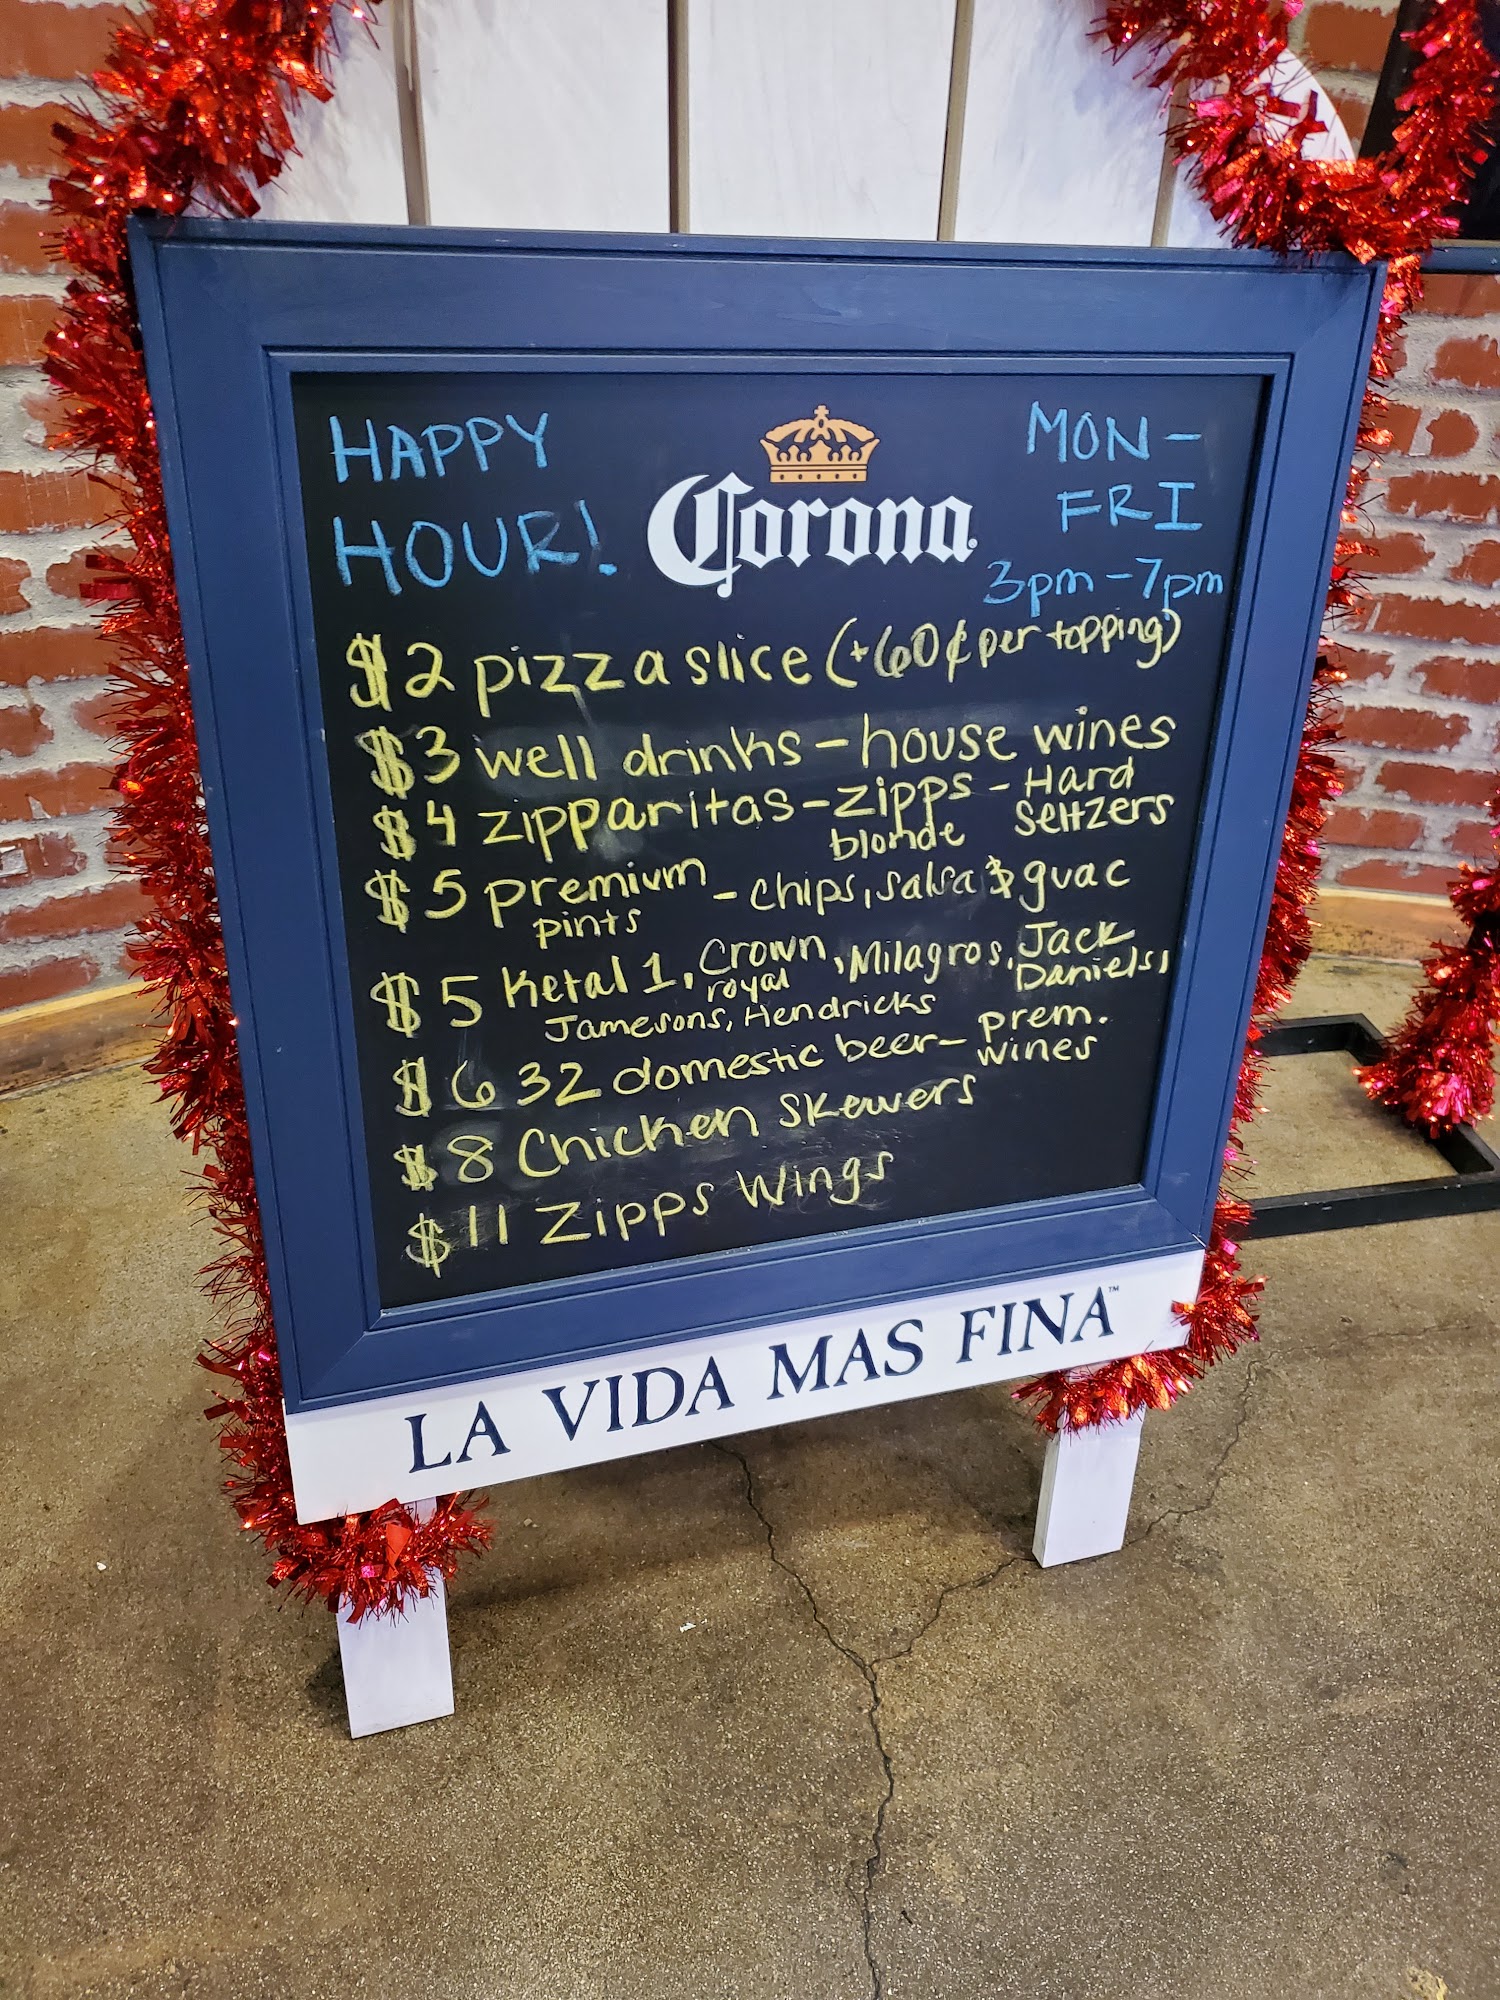 HAPPY
HOUR!
Corona
MON-
FRI
3pm-7pm
$2 pizza slice (+60¢ per topping)
$3 well drinks - house wines
$4 zipparitas - zipps blonde - Hard Seltzers
$5 premium pints - chips, salsa & guac
$5 Ketal 1, Crown royal, Milagros, Jack Daniels,
Jamesons, Hendricks
$6 32 domestic beer - prem. wines
$8 Chicken Skewers
$11 Zipps Wings
LA VIDA MAS FINA™